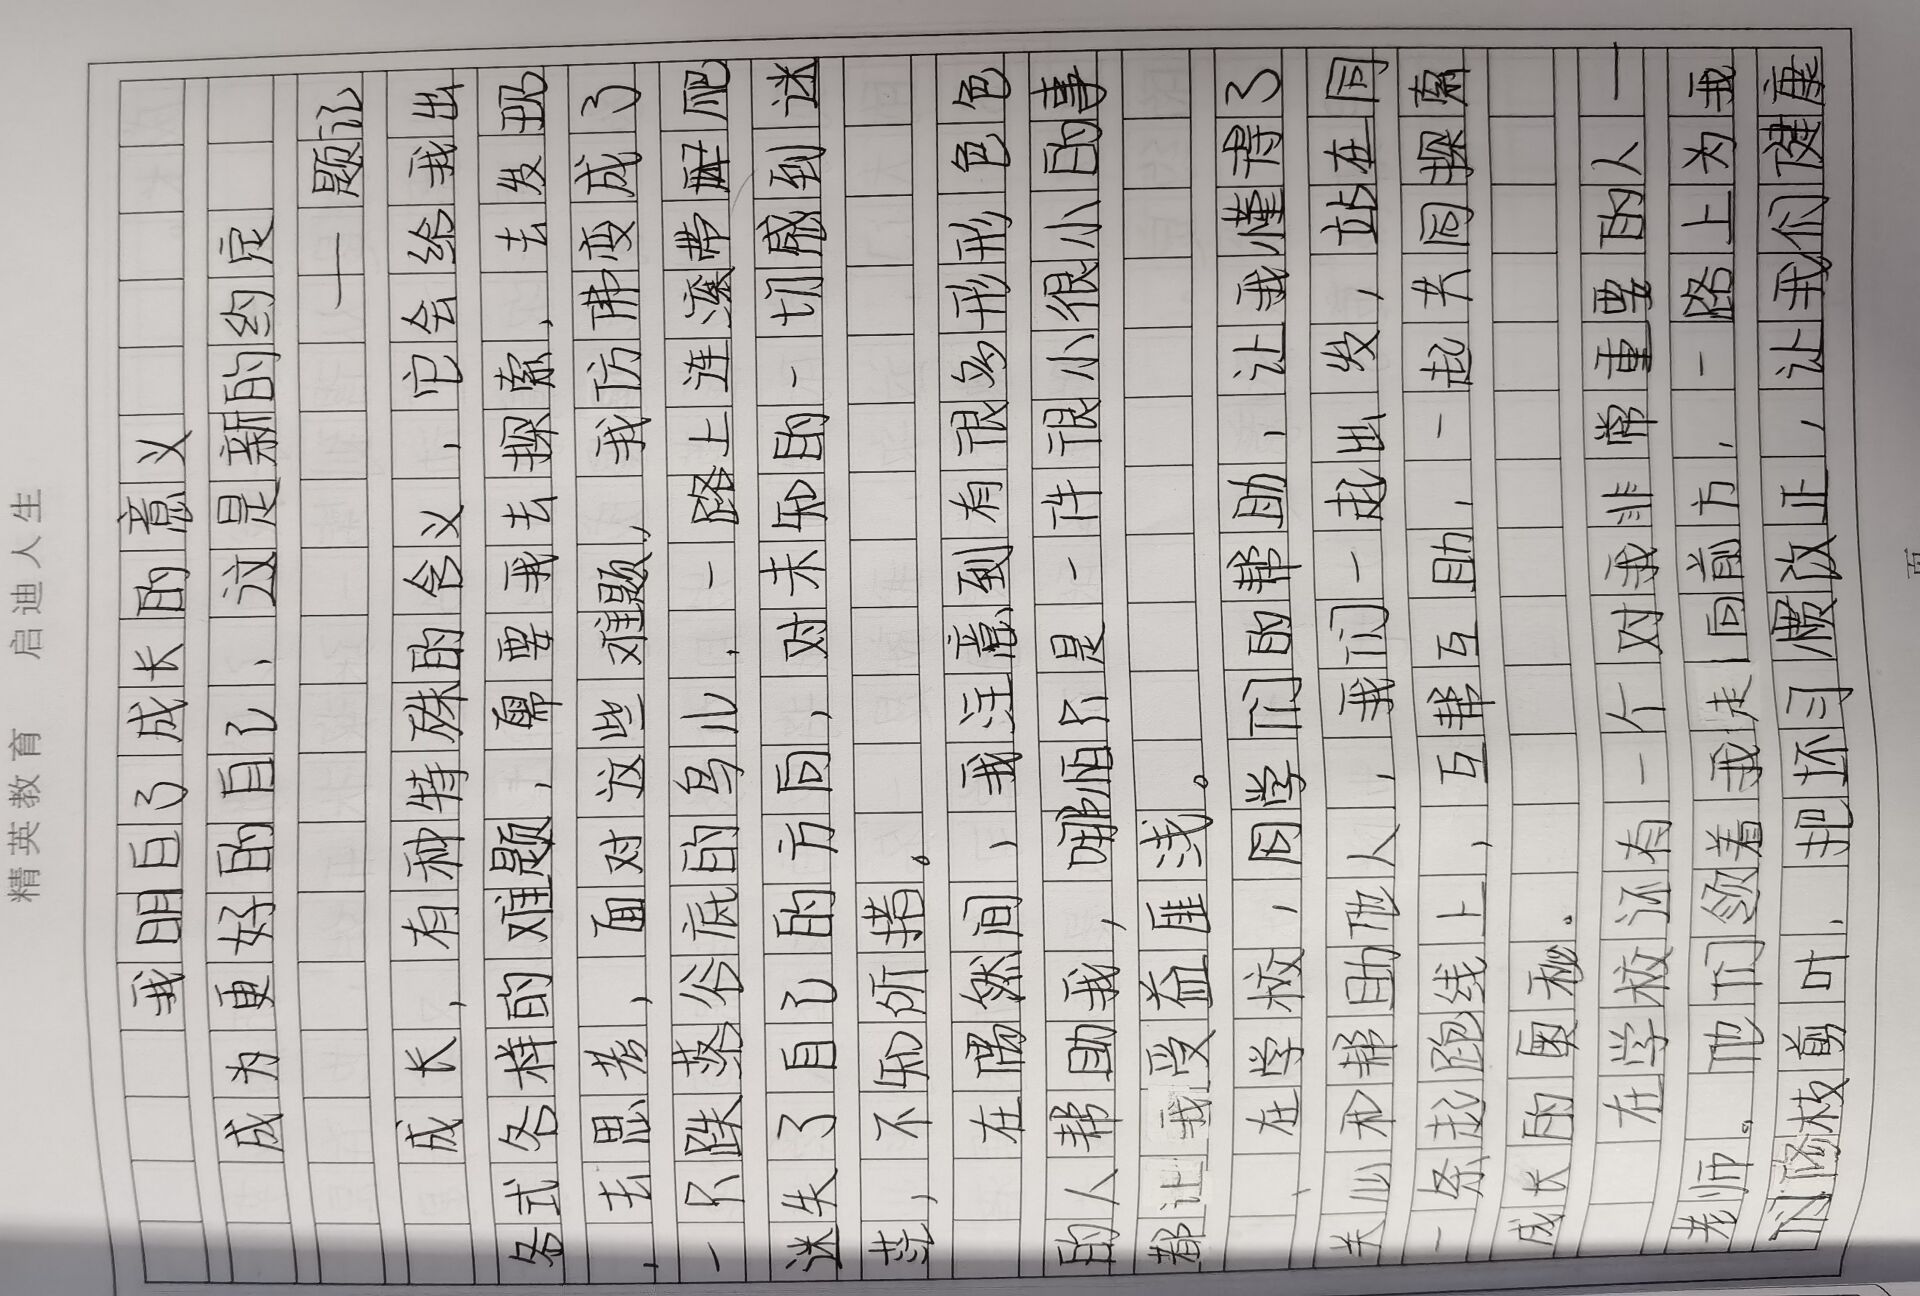 精英教育 启迪人生
我明白了成长的意义
成为更好的自己，这是新的约定
——题记
成长，有种特殊的含义，它会给我出
各式各样的难题，需要我去探索，去发现
，去思考，面对这些难题，我仿佛变成了
一只跌落谷底的鸟儿，一路上连滚带爬
迷失了自己的方向，对未知的一切感到迷
茫，不知所措。
在偶然间，我注意到有很多形形色色
的人帮助我，哪怕只是一件很小很小的事
都让我受益匪浅。
在学校，同学们的帮助，让我懂得了
关心和帮助他人，我们一起出发，站在同
一条起跑线上，互帮互助，一起共同探索
成长的奥秘。
在学校还有一个对我非常重要的人一
老师。他们领着我走向前方，一路上为我
们修枝剪叶，把坏习惯改正，让我们健康
页